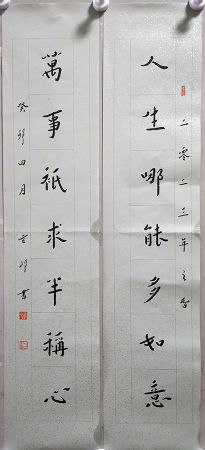 人生哪能多如意
二零二三年之春
萬事祇求半稱心
癸卯四月
書